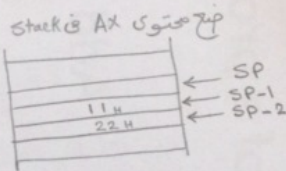 ضع محتوى AX في Stack
SP
SP-1
11H
SP-2
22H